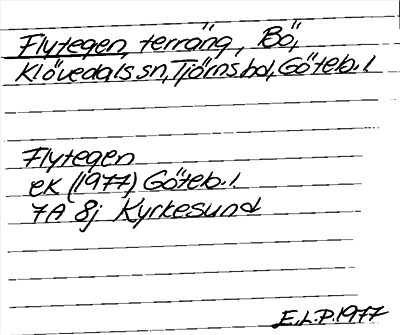 Flytegen, terräng, Bö,
Klövedals sn, Tjörns hd, Göteb. l
Flytegen
ek (1977) Göteb. l
7A 8j Kyrkesund
E.L.P. 1977